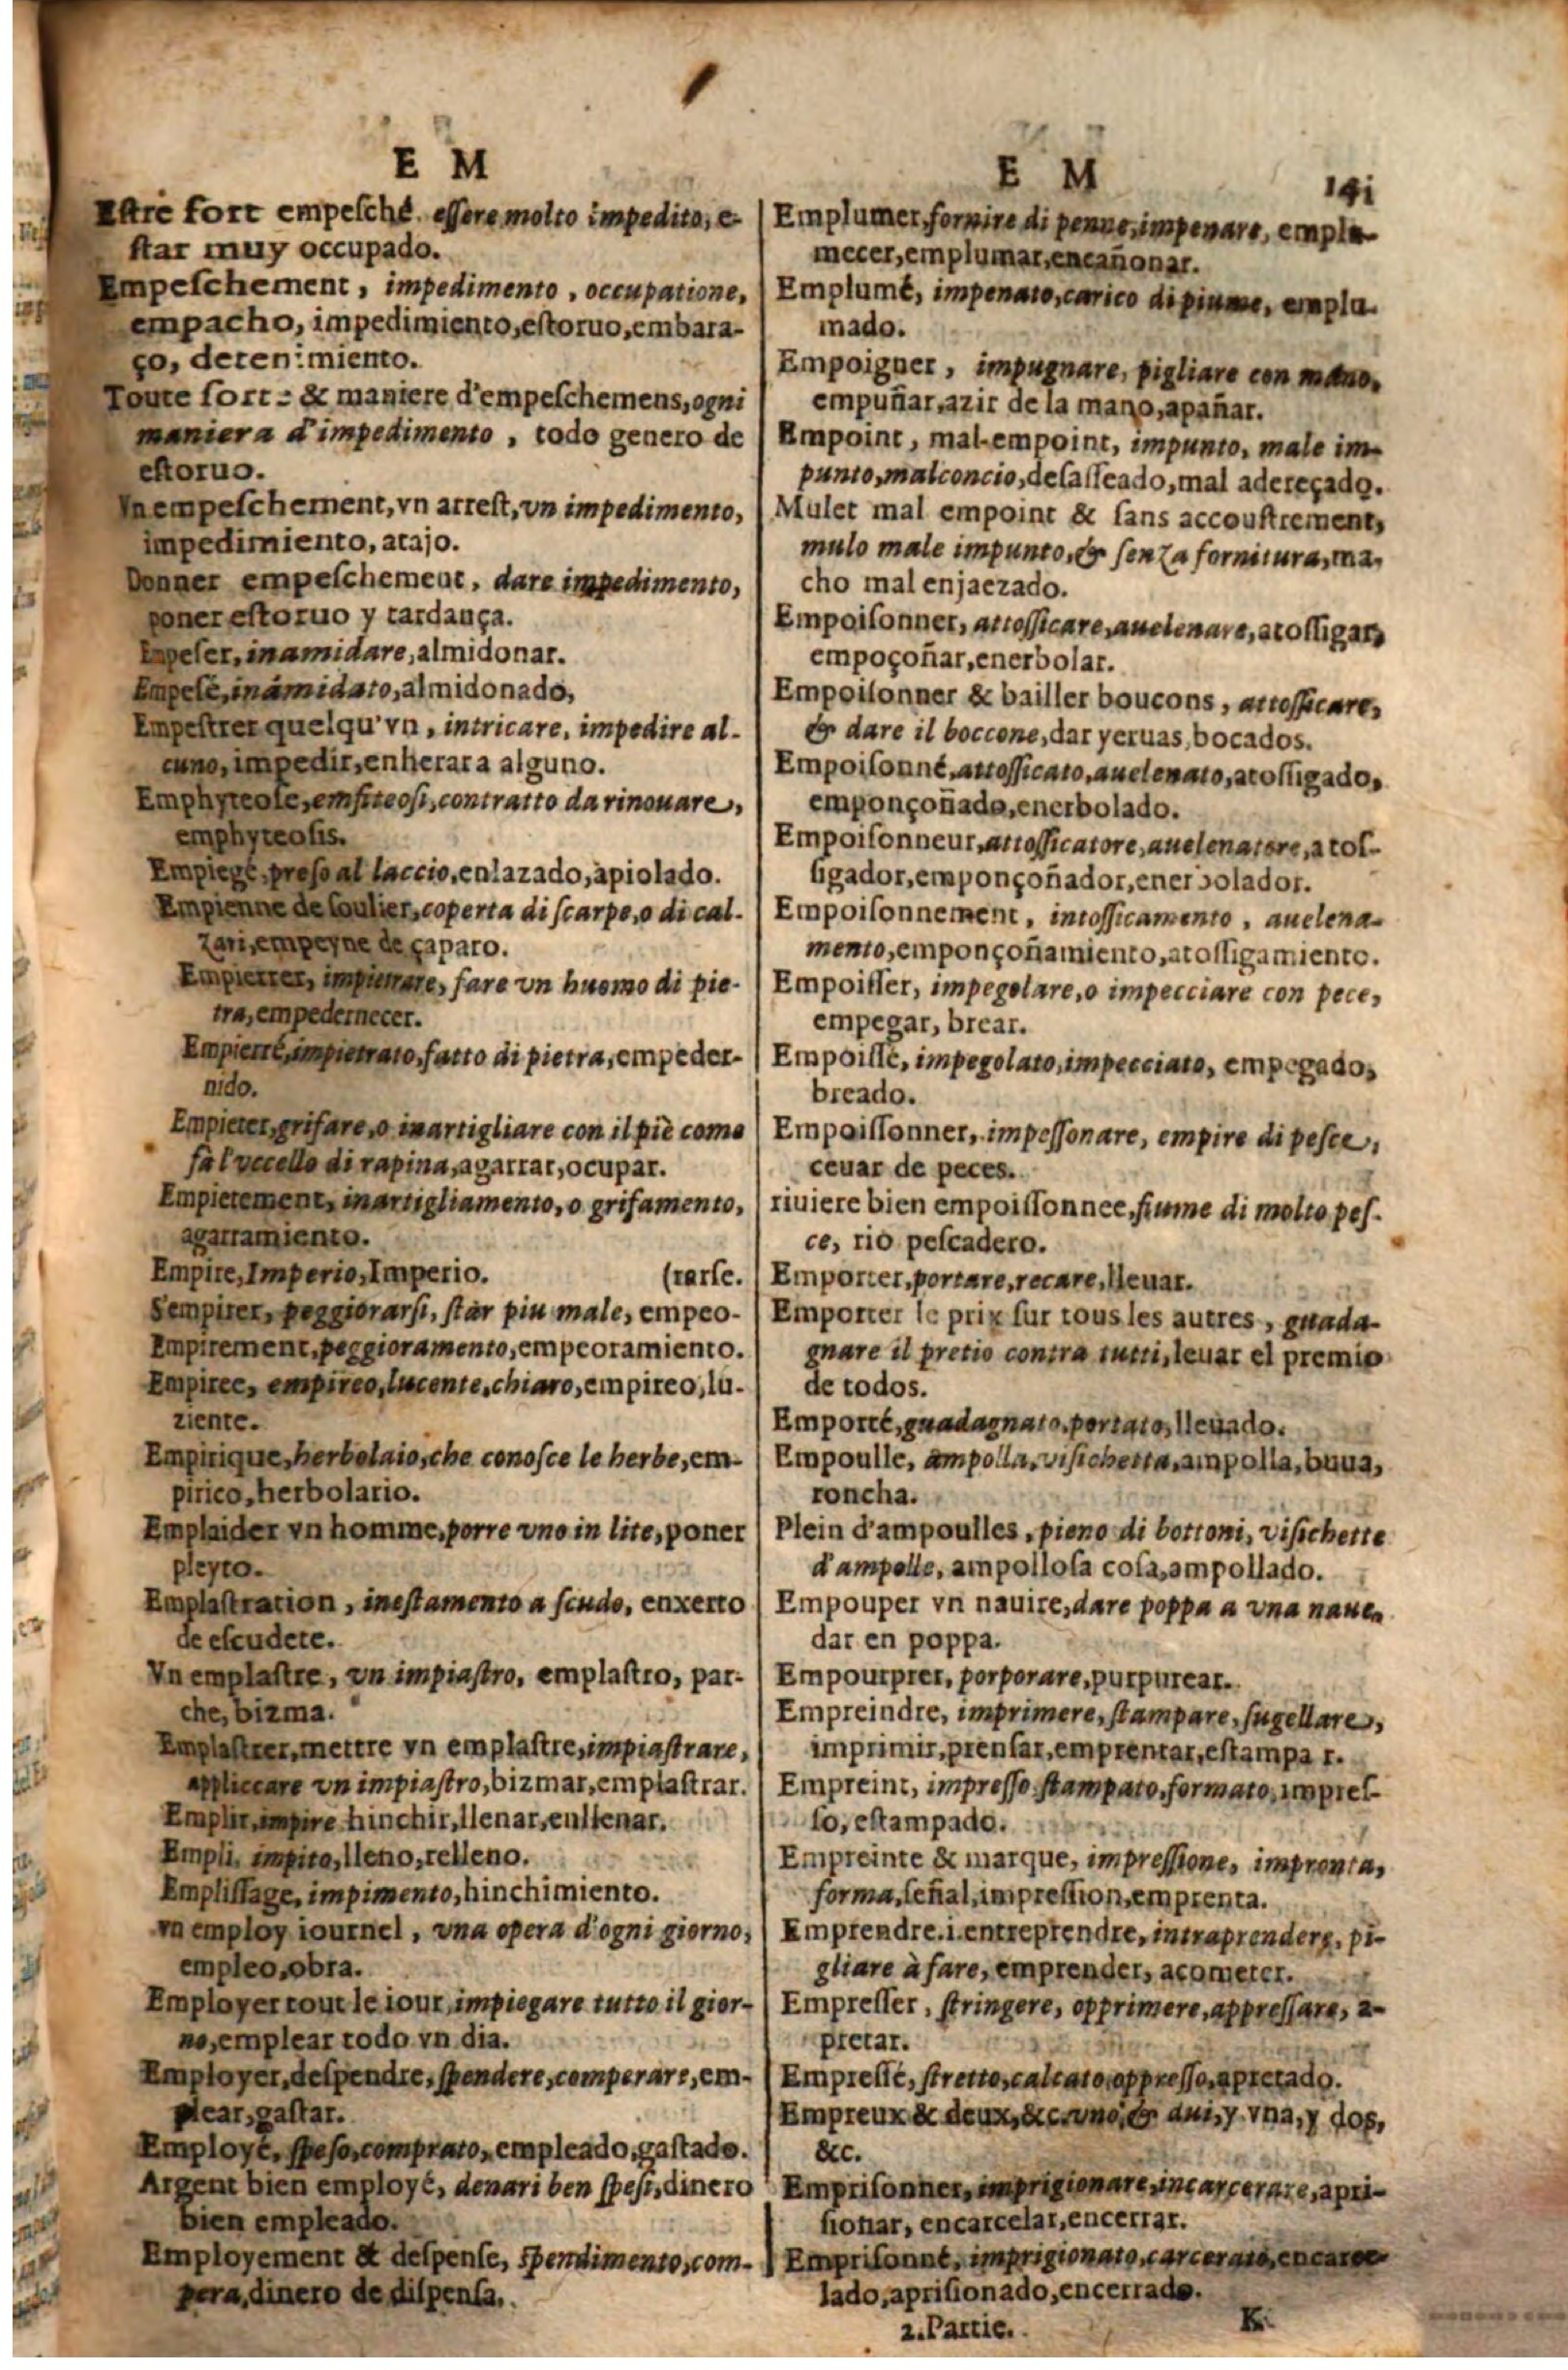 E M
Estre fort empesché, essere molto impedito, e-
star muy occupado.
Empeschement, impedimento, occupatione,
empacho, impedimiento, estoruo, embara-
ço, detenimiento.
Toute sorte & maniere d'empeschemens, ogni
maniera d'impedimento, todo genero de
estoruo.
Vn empeschement, vn arrest, vn impedimento,
impedimiento, atajo.
Donner empeschement, dare impedimento,
poner estoruo y tardança.
Empeser, inamidare, almidonar.
Empesé, inámidato, almidonado,
Empestrer quelqu'vn, intricare, impedire al-
cuno, impedir, enherara alguno.
Emphyteose, emfiteosi, contratto da rinouare,
emphyteosis.
Empiegé, preso al laccio, enlazado, apiolado.
Empienne de soulier, coperta di scarpe, o di cal-
zari, empeyne de çaparo.
Empierrer, impietrare, fare vn huomo di pie-
tra, empedernecer.
Empierré, impietrato, fatto di pietra, empeder-
nido.
Empieter, grifare, o inartigliare con il piè come
fà l'vccello di rapina, agarrar, ocupar.
Empietement, inartigliamento, o grifamento,
agarramiento.
Empire, Imperio, Imperio. (rarse.
S'empirer, peggiorarsi, stàr piu male, empeo-
Empirement, peggioramento, empeoramiento.
Empiree, empireo, lucente, chiaro, empireo, lu-
ziente.
Empirique, herbolaio, che conosce le herbe, em-
pirico, herbolario.
Emplaider vn homme, porre vno in lite, poner
pleyto.
Emplastration, inestamento a scudo, enxerto
de escudete.
Vn emplastre, vn impiastro, emplastro, par-
che, bizma.
Emplastrer, mettre vn emplastre, impiastrare,
appliccare vn impiastro, bizmar, emplastrar.
Emplir, impire hinchir, llenar, enllenar.
Empli, impito, lleno, relleno.
Emplissage, impimento, hinchimiento.
vn employ iournel, vna opera d'ogni giorno,
empleo, obra.
Employer tout le iour, impiegare tutto il gior-
no, emplear todo vn dia.
Employer, despendre, spendere, comperare, em-
plear, gastar.
Employé, speso, comprato, empleado, gastado.
Argent bien employé, denari ben spesi, dinero
bien empleado.
Employement & despense, spendimento, com-
pera, dinero de dispensa.
E M 141
Emplumer, fornire di penne, impenare, emplu-
mecer, emplumar, encañonar.
Emplumé, impenato, carico di piume, emplu-
mado.
Empoigner, impugnare, pigliare con mano,
empuñar, azir de la mano, apañar.
Empoint, mal-empoint, impunto, male im-
punto, malconcio, desasseado, mal adereçado.
Mulet mal empoint & sans accoustrement,
mulo male impunto, & senza fornitura, ma-
cho mal enjaezado.
Empoisonner, attossicare, auelenare, atossigar,
empoçoñar, enerbolar.
Empoisonner & bailler boucons, attossicare,
& dare il boccone, dar yeruas, bocados.
Empoisonné, attossicato, auelenato, atossigado,
emponçoñado, enerbolado.
Empoisonneur, attossicatore, auelenatore, atos-
sigador, emponçoñador, enerbolador.
Empoisonnement, intossicamento, auelena-
mento, emponçoñamiento, atossigamiento.
Empoisser, impegolare, o impecciare con pece,
empegar, brear.
Empoissé, impegolato, impecciato, empegado,
breado.
Empoissonner, impessonare, empire di pesce,
ceuar de peces.
riuiere bien empoissonnee, fiume di molto pes-
ce, rio pescadero.
Emporter, portare, recare, lleuar.
Emporter le prix sur tous les autres, guada-
gnare il pretio contra tutti, leuar el premio
de todos.
Emporté, guadagnato, portato, lleuado.
Empoulle, ampolla, visichetta, ampolla, buua,
roncha.
Plein d'ampoulles, pieno di bottoni, visichette
d'ampolle, ampollosa cosa, ampollado.
Empouper vn nauire, dare poppa a vna naue,
dar en poppa.
Empourprer, porporare, purpurear.
Empreindre, imprimere, stampare, sugellare,
imprimir, prensar, emprentar, estampa r.
Empreint, impresso stampato, formato, impres-
so, estampado.
Empreinte & marque, impressione, impronta,
forma, señal, impression, emprenta.
Emprendre. i. entreprendre, intraprendere, pi-
gliare à fare, emprender, acometer.
Empresser, stringere, opprimere, appressare, a-
pretar.
Empressé, stretto, calcato, oppresso, apretado.
Empreux & deux, &c. vno, & dui, y vna, y dos,
&c.
Emprisonner, imprigionare, incarcerare, apri-
sionar, encarcelar, encerrar.
Emprisonné, imprigionato, carcerato, encarce-
lado, aprisionado, encerrado.
2. Partie. K